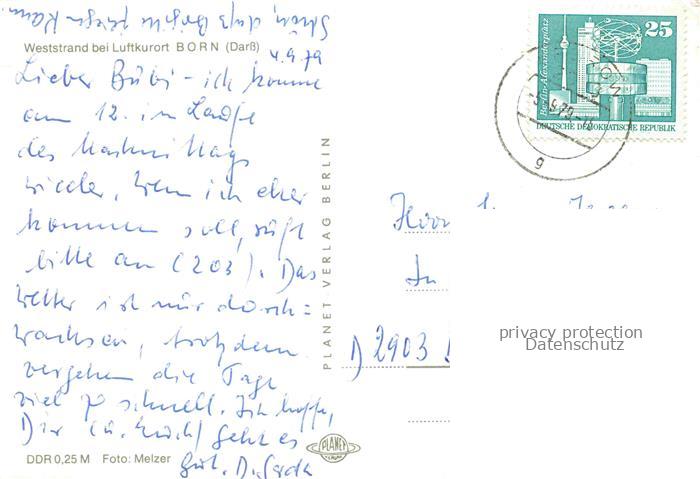 Schön, daß Brigitte Jürgen kam.
Weststrand bei Luftkurort BORN (Darß)
4.9.79
Lieber Bubi – ich komme
am 12. im Laufe
des Nachmittags
wieder, wenn ich eher
kommen soll, ruft
bitte an (203). Das
Wetter ist nur durch=
wachsen, trotzdem
vergehen die Tage
viel zu schnell. Ich hoffe,
Dir geht es
gut.
DDR 0,25 M Foto: Melzer
PLANET VERLAG BERLIN
PLANET
25
Berlin-Alexanderplatz
DEUTSCHE DEMOKRATISCHE REPUBLIK
g
Herr
In
D 2903
privacy protection
Datenschutz